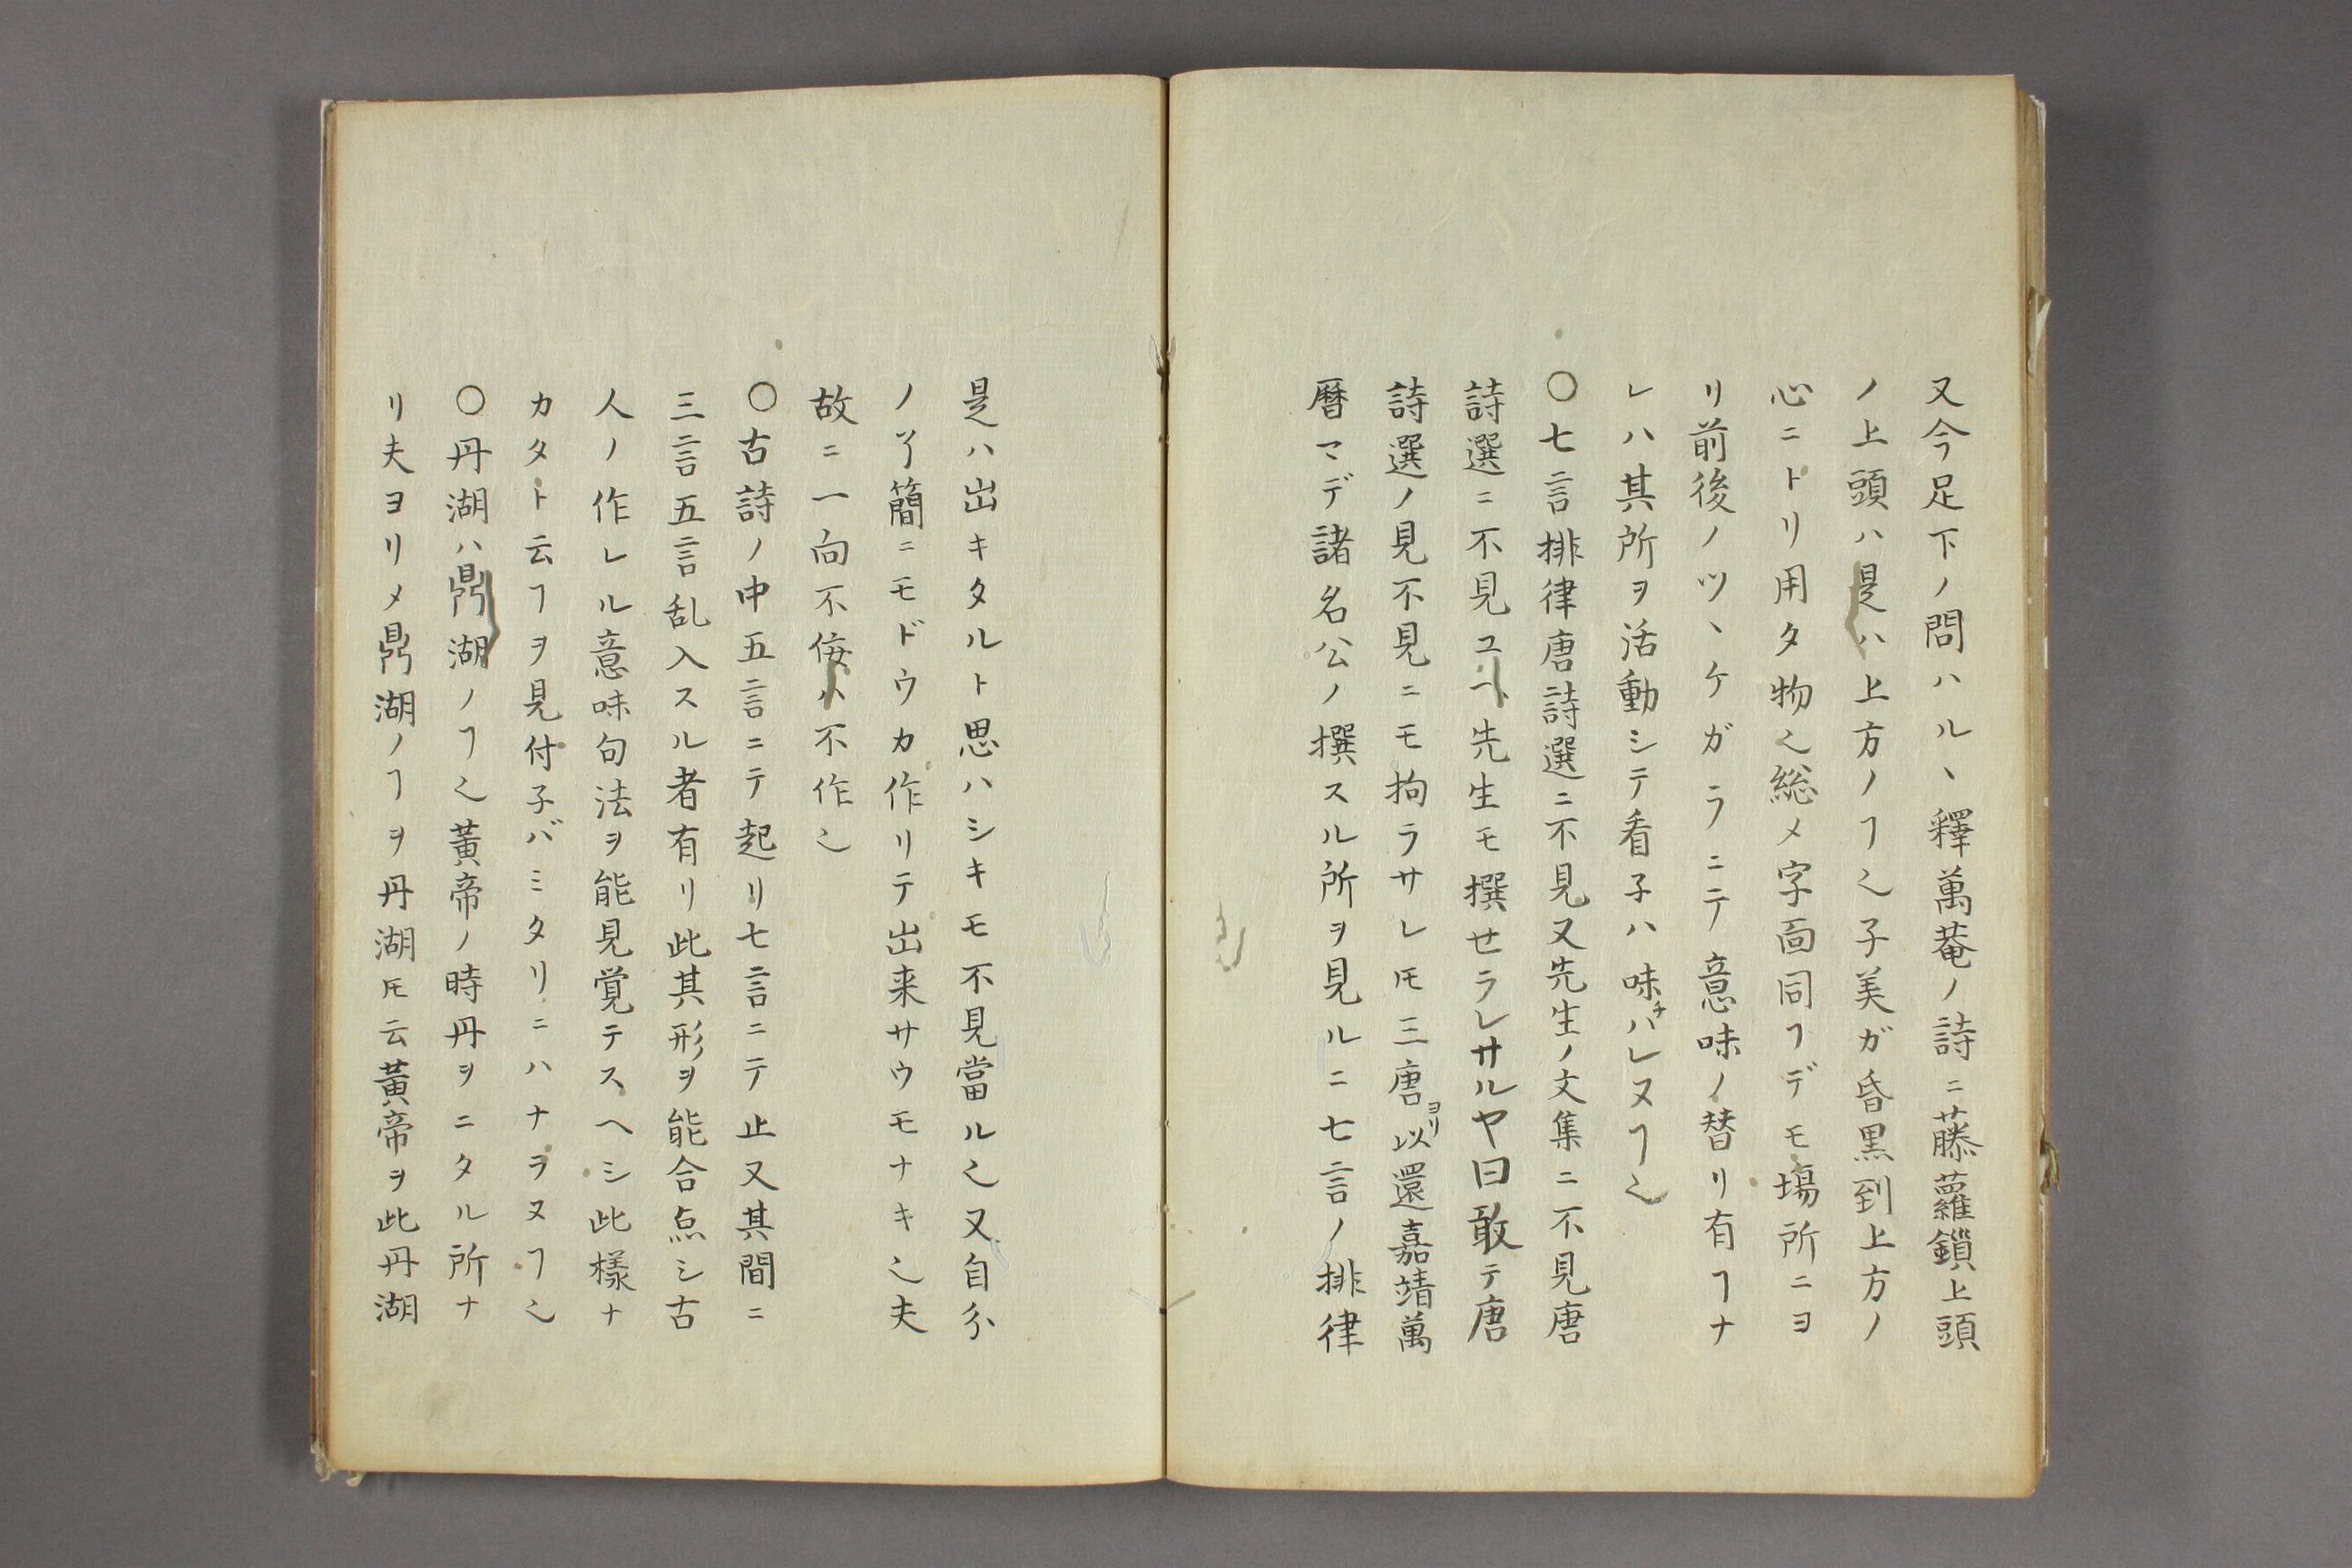 又今足下ノ問ハル丶釋萬菴ノ詩ニ藤蘿鎖上頭
ノ上頭ハ是ハ上方ノヿ乀子美ガ昏黒到上方ノ
心ニトリ用タ物乀総メ字面同ヿデモ塲所ニヨ
リ前後ノツヽケガラニテ意味ノ替リ有ヿナ
レハ其所ヲ活動シテ看子ハ味チハレヌヿ乀
〇七言排律唐詩選ニ不見又先生ノ文集ニ不見唐
詩選ニ不見ユヘ先生モ撰せラレサルヤ曰敢テ唐
詩選ノ見不見ニモ拘ラサレ𪜈三唐ヨリ以還嘉靖萬
暦マデ諸名公ノ撰スル所ヲ見ルニ七言ノ排律
是ハ出キタルト思ハシキモ不見當ル乀又自分
ノ了簡ニモドウカ作リテ出来サウモナキ乀夫
故ニ一向不侫ハ不作乀
〇古詩ノ中五言ニテ起リ七言ニテ止又其間ニ
三言五言乱入スル者有リ此其形ヲ能合点シ古
人ノ作レル意味句法ヲ能見覚テスヘシ此様ナ
カタト云ヿヲ見付子バミタリニハナラヌヿ乀
〇丹湖ハ鼎湖ノヿ乀黄帝ノ時丹ヲニタル所ナ
リ夫ヨリメ鼎湖ノヿヲ丹湖𪜈云黄帝ヲ此丹湖